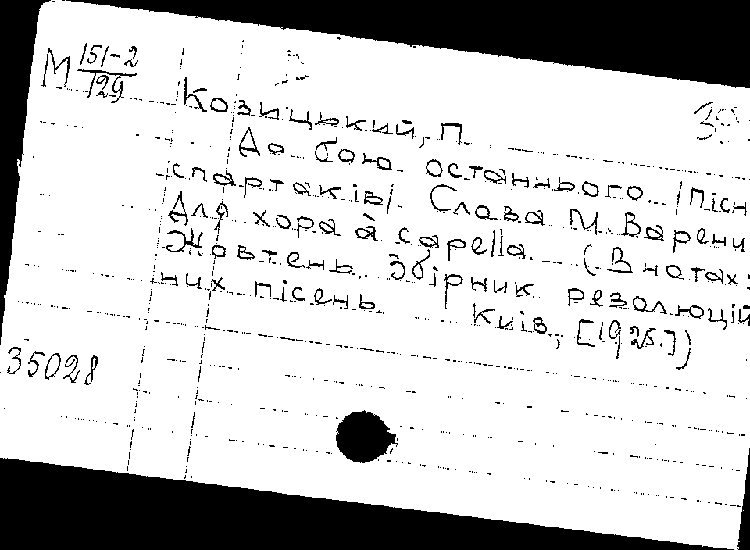 М 151-2
129
Козицький, П.
До бою останнього /Пісн
спартаків/. Слова М. Варени
Для хора à capella. (В нотах:
Жовтень. Збірник резолюцій
них пісень. Київ, [1925.])
35028